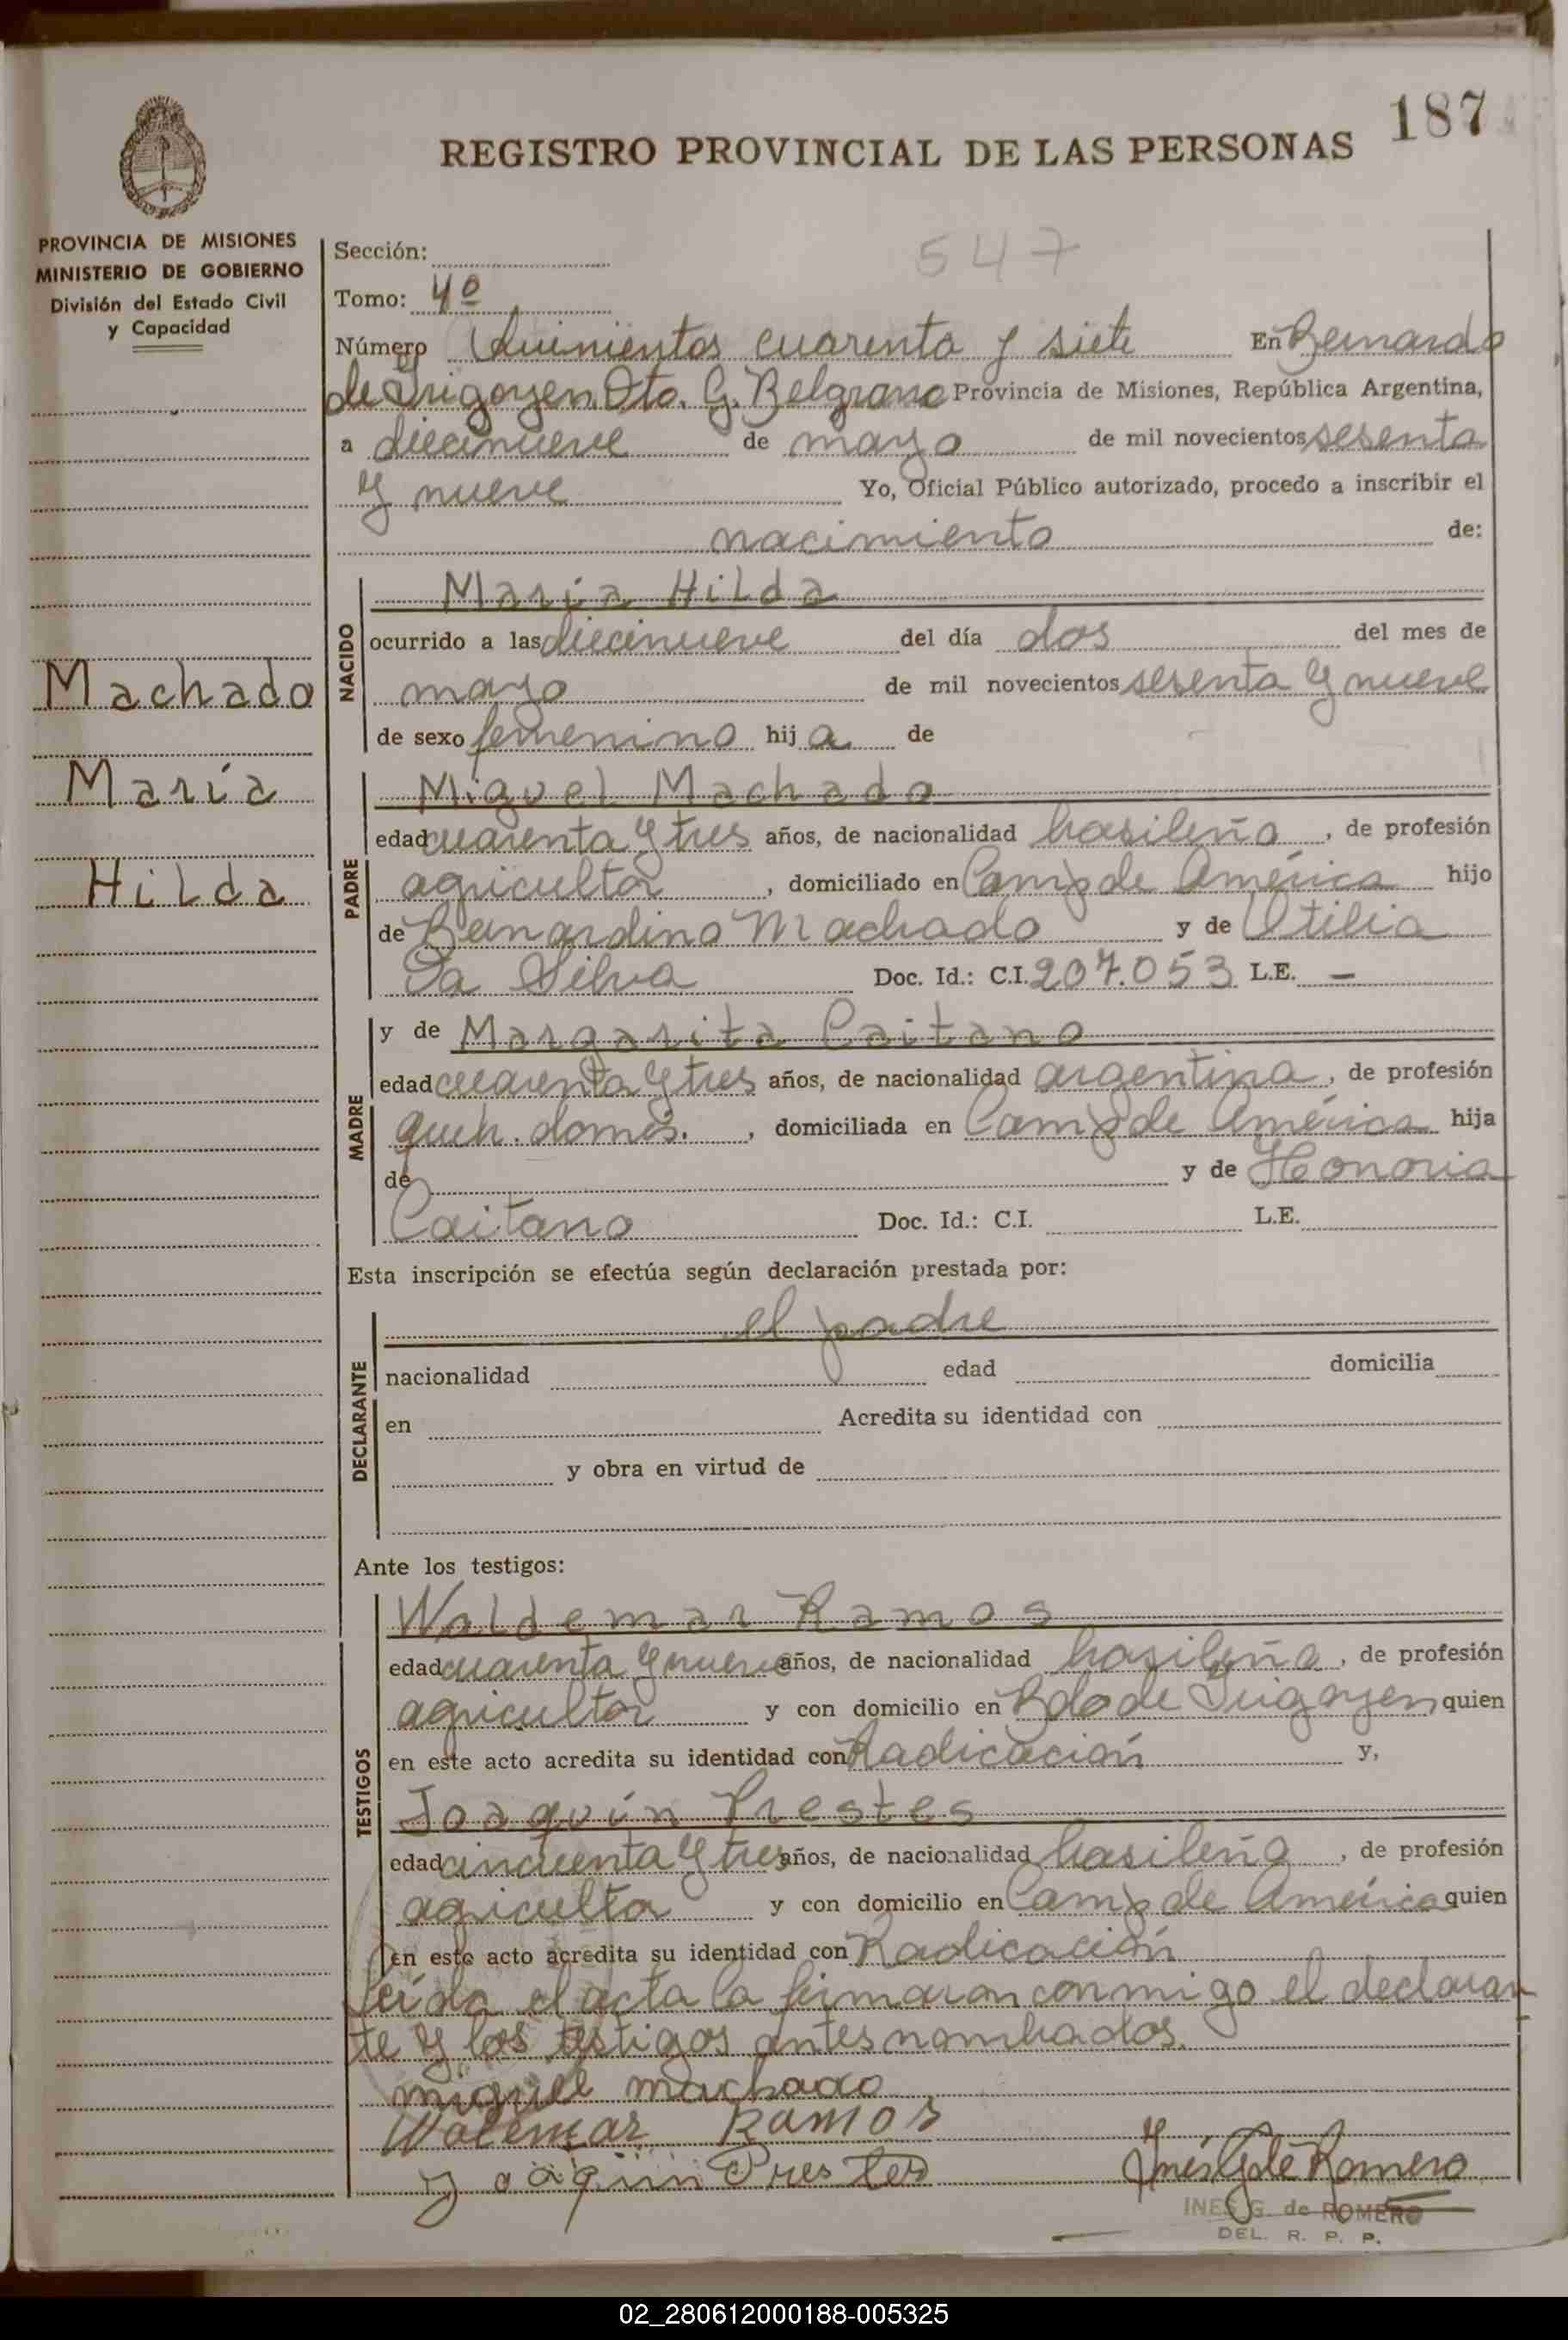 187
REGISTRO PROVINCIAL DE LAS PERSONAS
PROVINCIA DE MISIONES
MINISTERIO DE GOBIERNO
División del Estado Civil
y Capacidad
Machado
María
Hilda
Sección:
547
Tomo: 4º
Número Quinientos cuarenta y siete En Bernardo
de Irigoyen. Dto. G. Belgrano Provincia de Misiones, República Argentina,
a diecinueve de mayo de mil novecientos sesenta
y nueve Yo, Oficial Público autorizado, procedo a inscribir el
nacimiento de:
NACIDO
María Hilda
ocurrido a las diecinueve del día dos del mes de
mayo de mil novecientos sesenta y nueve
de sexo femenino hij a de
PADRE
Miguel Machado
edad cuarenta y tres años, de nacionalidad brasileña, de profesión
agricultor, domiciliado en Camp de América hijo
de Bernardino Machado y de Otilia
Da Silva Doc. Id.: C.I. 207.053 L.E. —
MADRE
y de Margarita Caitano
edad cuarenta y tres años, de nacionalidad argentina, de profesión
queh. domés., domiciliada en Camp de América hija
de y de Honoria
Caitano Doc. Id.: C.I. L.E.
Esta inscripción se efectúa según declaración prestada por:
DECLARANTE
el padre
nacionalidad edad domicilia
en Acredita su identidad con
y obra en virtud de
Ante los testigos:
TESTIGOS
Waldemar Ramos
edad cuarenta y nueve años, de nacionalidad brasileña, de profesión
agricultor y con domicilio en Bdo de Irigoyen quien
en este acto acredita su identidad con Radicación y,
Joaquín Prestes
edad cincuenta y tres años, de nacionalidad brasileña, de profesión
agricultor y con domicilio en Camp de América quien
en este acto acredita su identidad con Radicación
Leída el acta la firmaron conmigo el declaran
te y los testigos antes nombrados.
miguel machado
Walemar Ramos
Joaqiin Prestes
Inés G de Romero
INES G. de ROMERO
DEL. R. P. P.
02_280612000188-005325